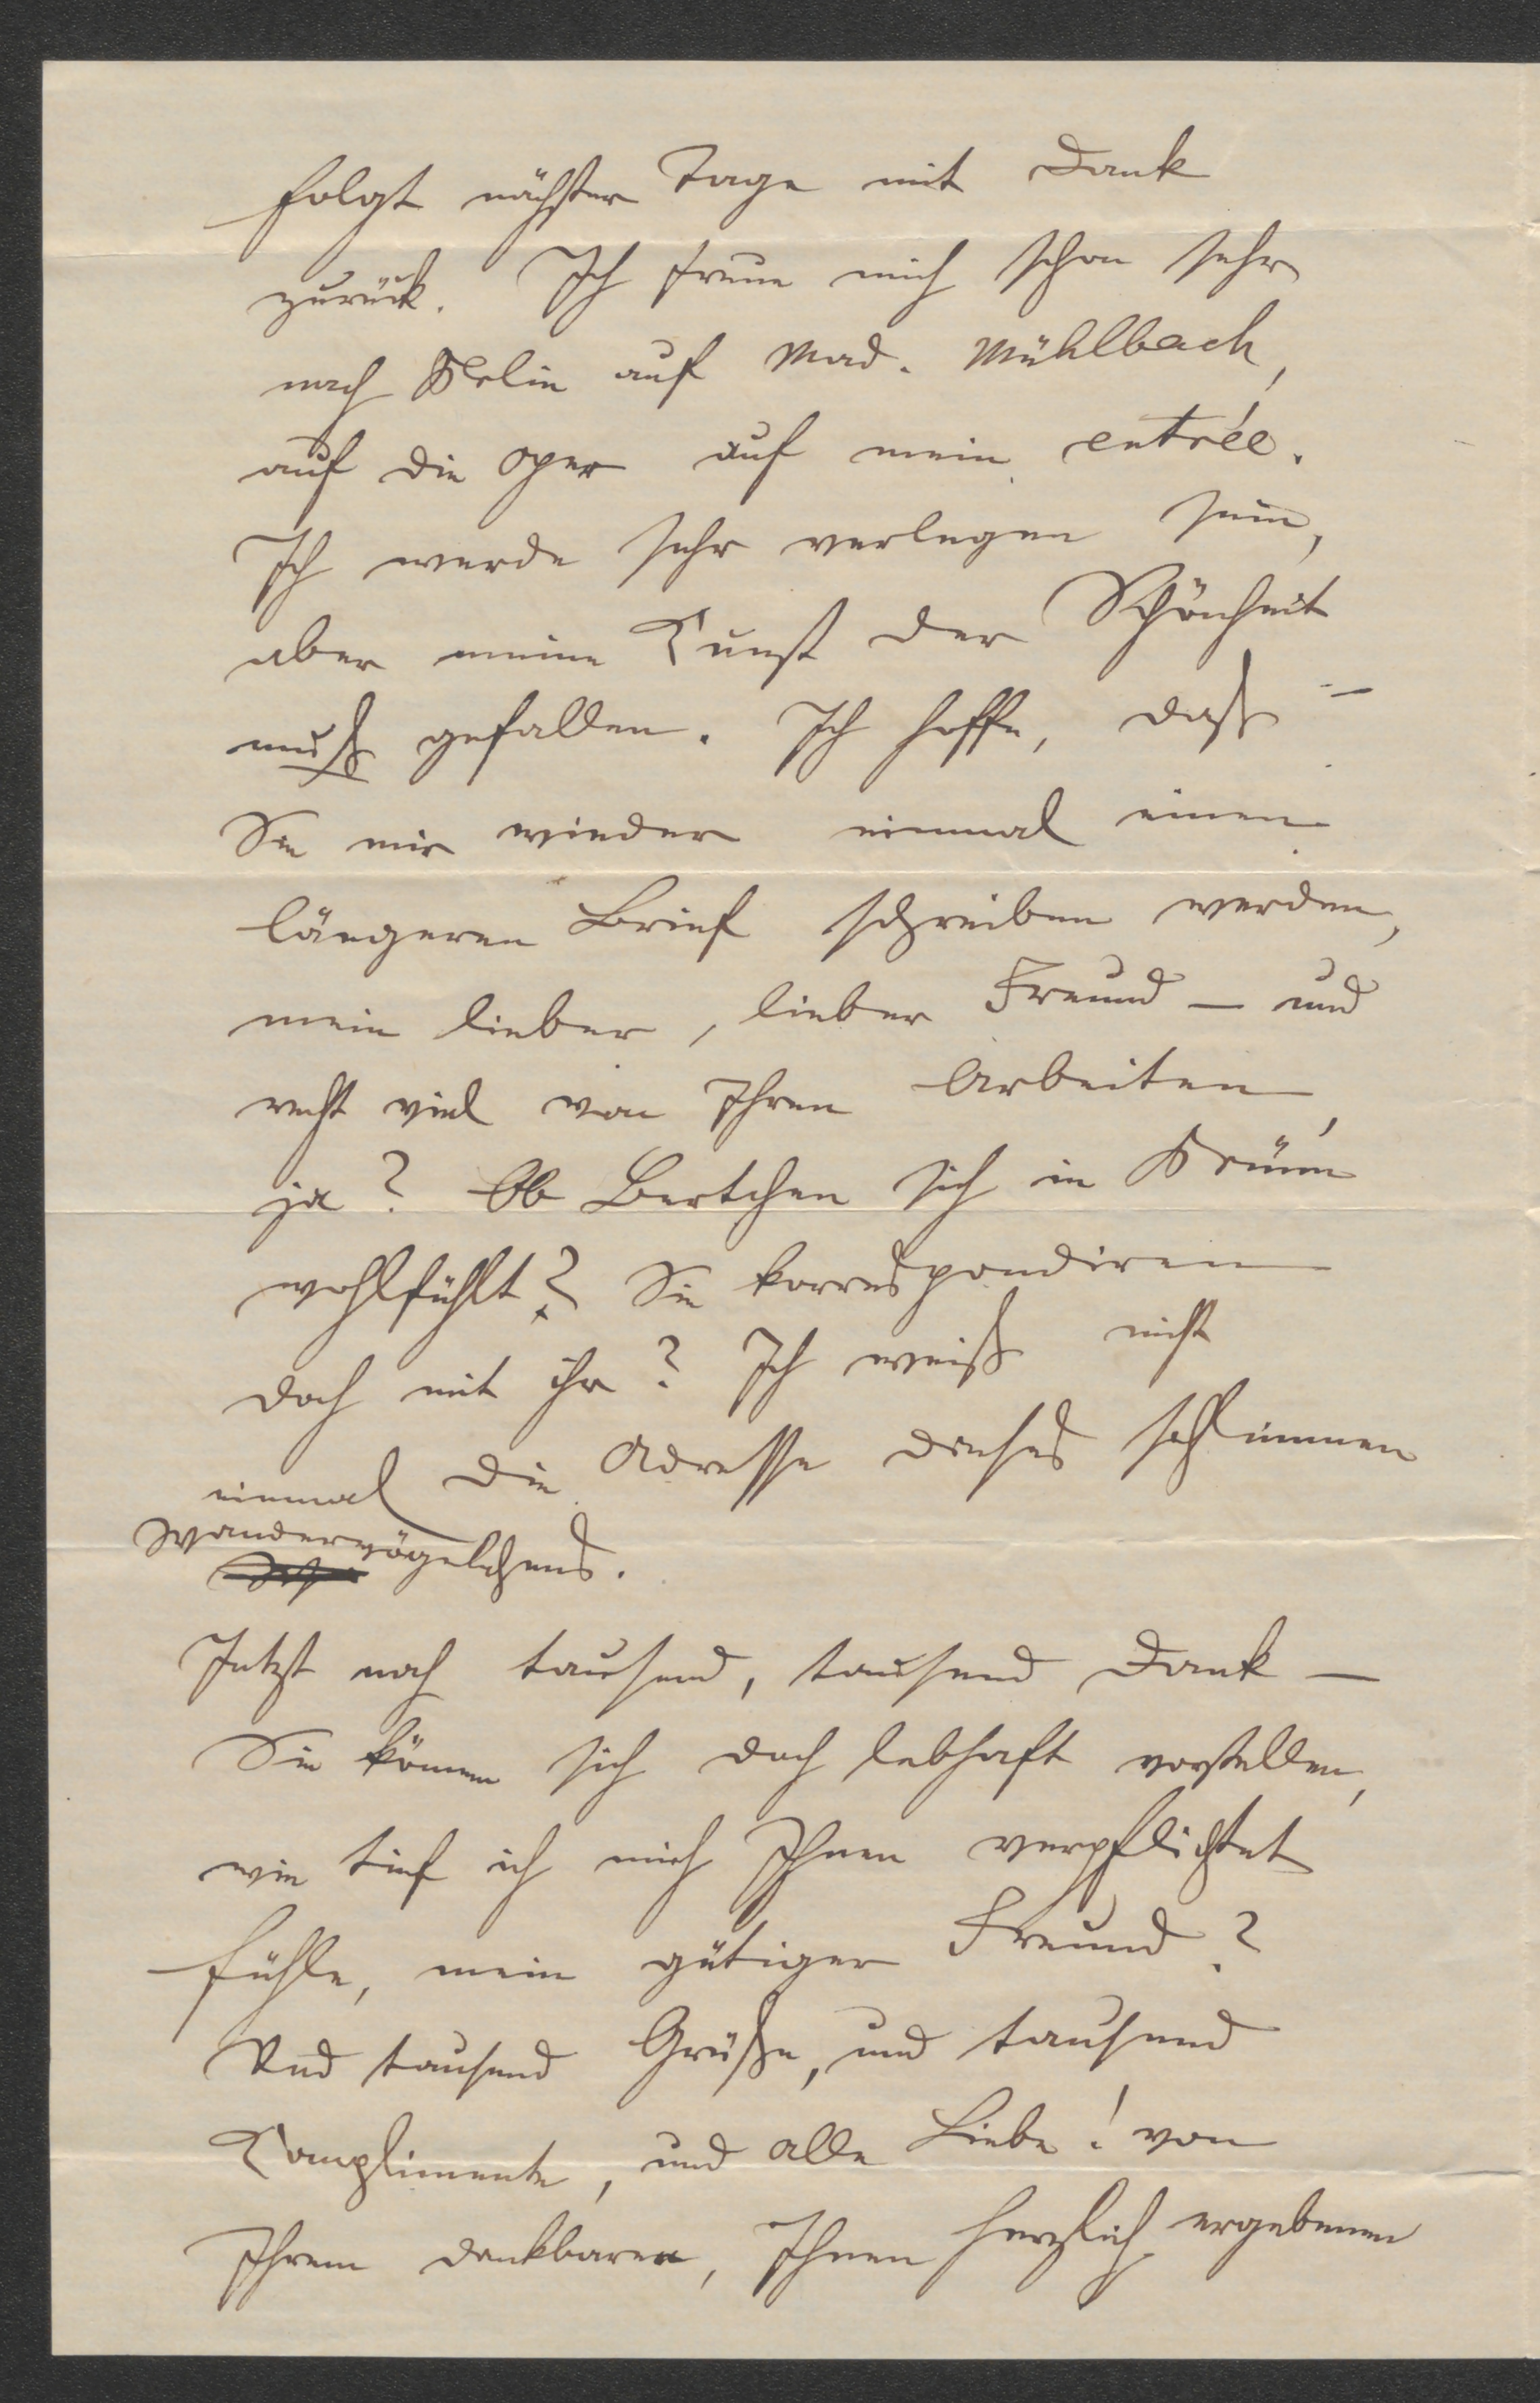 folgt nächster Tage mit Dank
zurück. Ich freue mich schon sehr
nach Berlin auf Mad. Mühlbach,
auf die Oper auf mein entrée.
Ich werde sehr verlegen sein,
aber meine Kunst der Schönheit
muß gefallen. Ich hoffe, daß
Sie mir wieder einmal einen
längeren Brief schreiben werden,
mein lieber, lieber Freund — und
recht viel von Ihren Arbeiten,
ja? Ob Bertchen sich in Brünn
wohlfühlt? Sie korrespondiren
doch mit ihr? Ich weiß nicht
einmal die Adresse dieses schlimmen
Wandervögelchens.
Jetzt noch tausend, tausend Dank —
Sie können sich doch lebhaft vorstellen,
wie tief ich mich Ihnen verpflichtet
fühle, mein gütiger Freund?
Und tausend Grüße, und tausend
Complimente, und alle Liebe! von
Ihrem dankbaren, Ihnen herzlich ergebenen